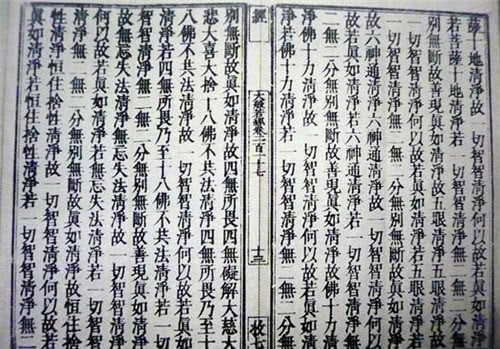 薩十地清淨故一切智智清淨何以故若真如清淨
若菩薩十地清淨若一切智智清淨無二無二分無
別無斷故善現真如清淨故五眼清淨五眼清淨
故一切智智清淨何以故若真如清淨若五眼清淨
若一切智智清淨無二無二分無別無斷故真如清淨
故六神通清淨六神通清淨故一切智智清淨何以
故若真如清淨若六神通清淨若一切智智清淨無
二無二分無別無斷故善現真如清淨故佛十力清
淨佛十力清淨故一切智智清淨何以故若真如清
淨若佛十力清淨若一切智智清淨無二無二分無
經
大般若經卷二百二十七
十三
別無斷故真如清淨故四無所畏四無礙解大慈大
悲大喜大捨十八佛不共法清淨四無所畏乃至十
八佛不共法清淨故一切智智清淨何以故若真如
清淨若四無所畏乃至十八佛不共法清淨若一切
智智清淨無二無二分無別無斷故善現真如清淨
故無忘失法清淨無忘失法清淨故一切智智清淨
何以故若真如清淨若無忘失法清淨若一切智智
清淨無二無二分無別無斷故真如清淨故恒住捨
性清淨恒住捨性清淨故一切智智清淨何以故若
真如清淨若恒住捨性清淨若一切智智清淨無二